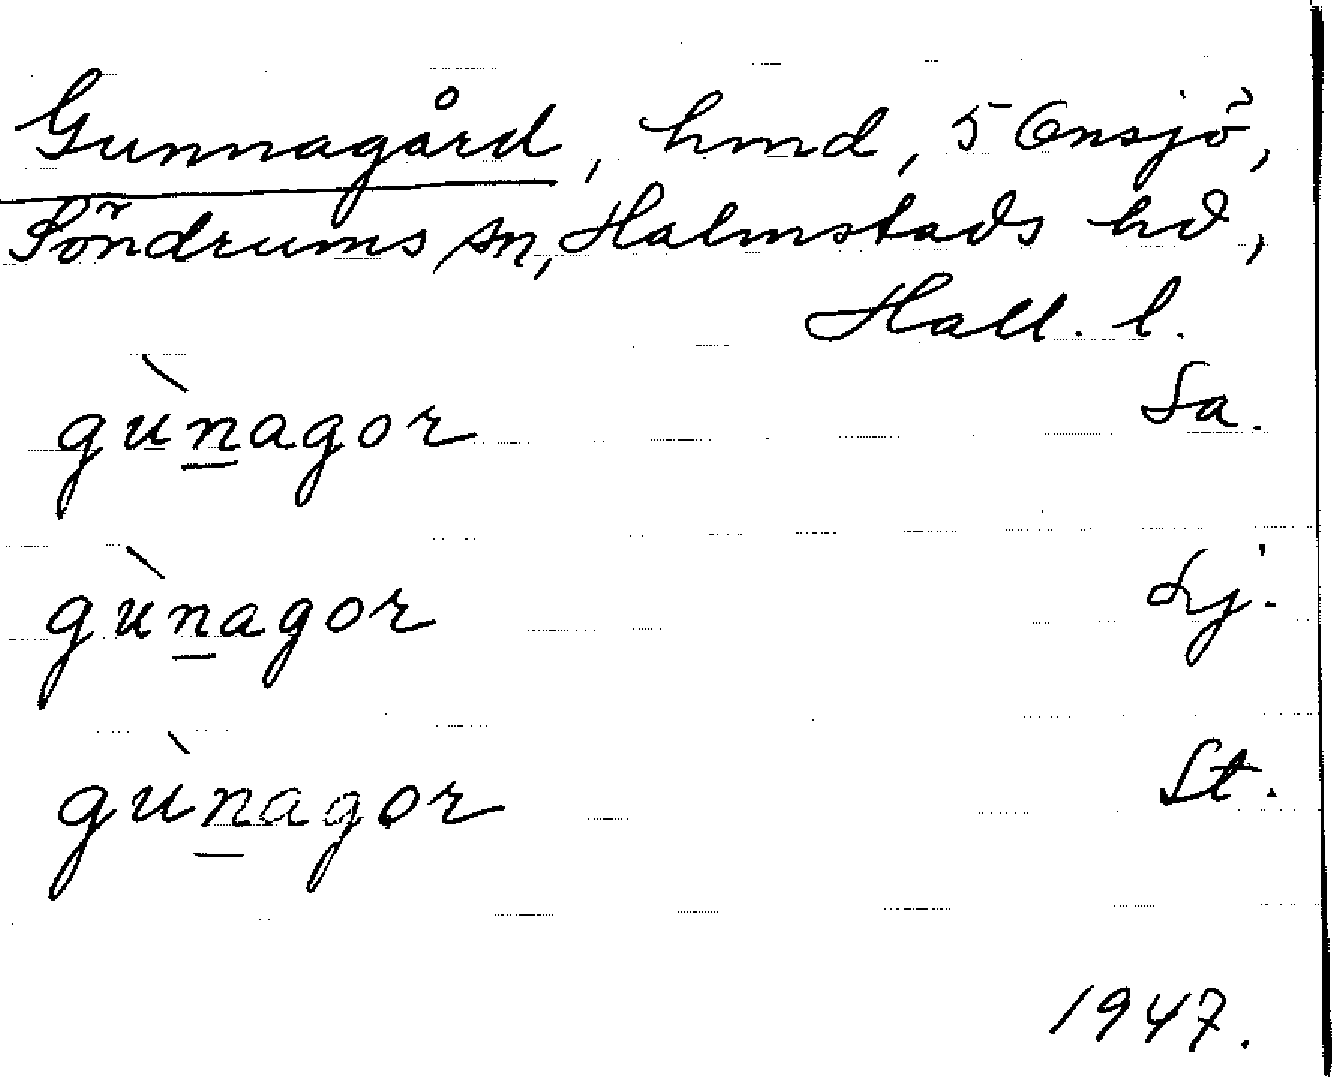 Gunnagård, hmd, 5 Onsjö,
Söndrums sn, Halmstads hd,
Hall. l.
gùn̲agor Sa.
gùn̲agor Lj.
gùn̲agor St.
1947.